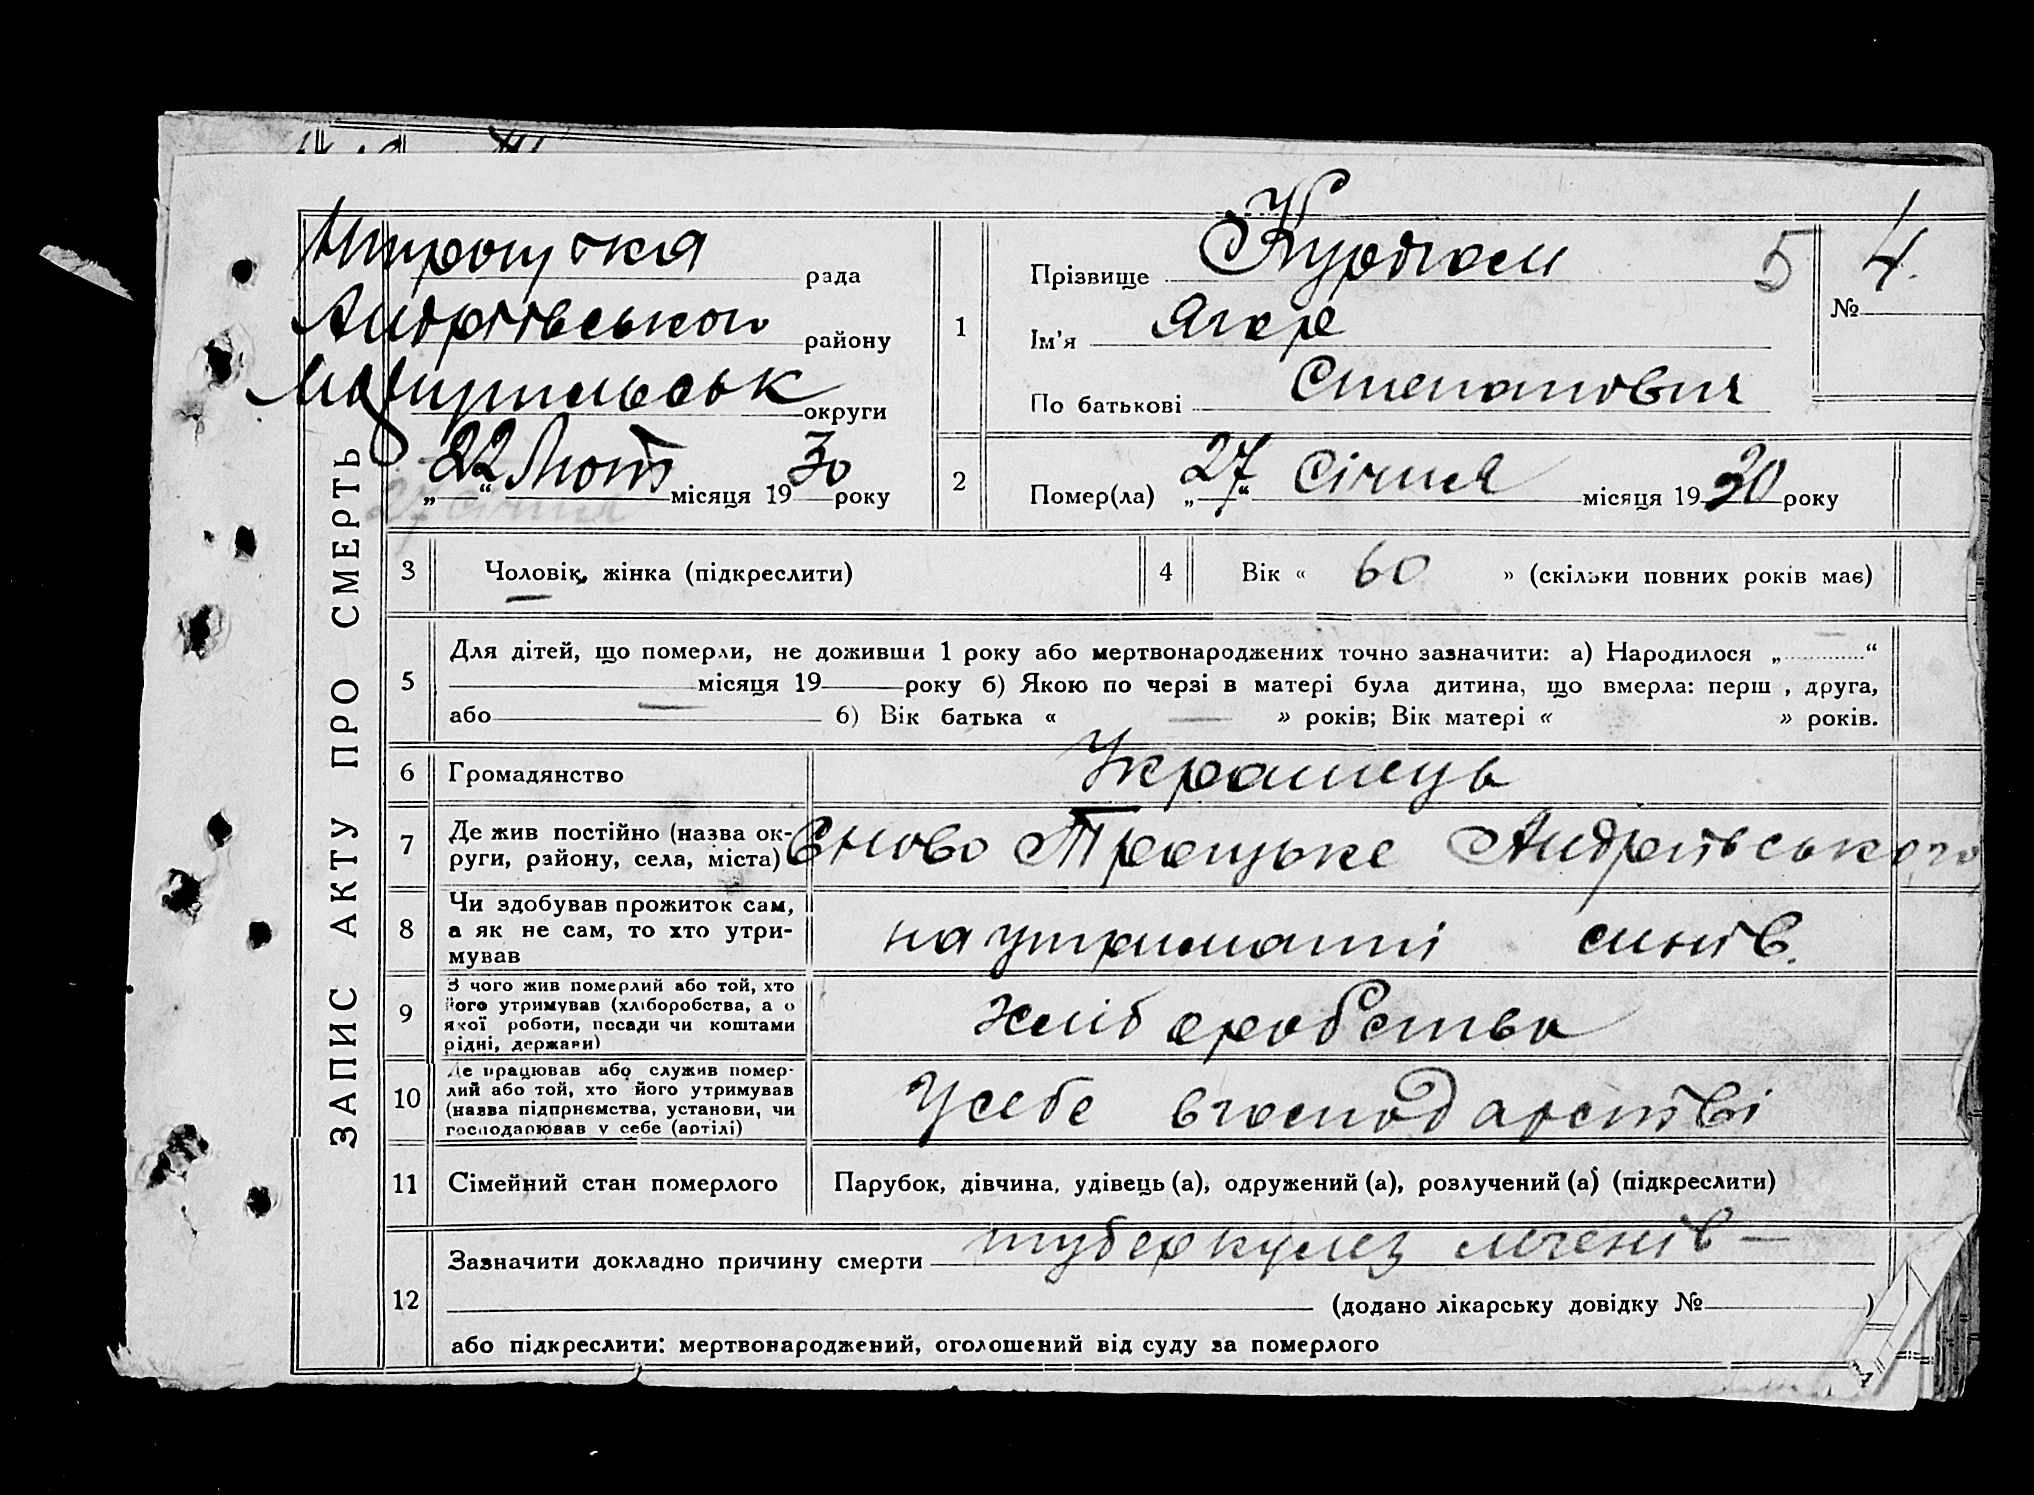 рада
Андріївського району
Маріупільськ округи
„22“ Лют місяця 1930 року
27 січня
ЗАПИС АКТУ ПРО СМЕРТЬ
1
Прізвище 5
Ім'я Ягор
По батькові Степанович
№ 4.
2
Помер(ла) „27“ Січня місяця 1930 року
3 Чоловік, жінка (підкреслити)
4 Вік « 60 » (скільки повних років має)
5
Для дітей, що померли, не доживши 1 року або мертвонароджених точно зазначити: а) Народилося „ “
місяця 19 року б) Якою по черзі в матері була дитина, що вмерла: перш , друга,
або б) Вік батька « — » років; Вік матері « » років.
6 Громадянство Украінець
7 Де жив постійно (назва ок-
руги, району, села, міста)
Єново Троіцьке Андріівського
8 Чи здобував прожиток сам,
а як не сам, то хто утри-
мував
на утриманні синів.
9 З чого жив померлий або той, хто
його утримував (хліборобства, а о
якої роботи, посади чи коштами
рідні, держави)
хліборобство
10 Де працював або служив помер-
лий або той, хто його утримував
(назва підприємства, установи, чи
господарював у себе (артілі)
У себе в господарстві
11 Сімейний стан померлого Парубок, дівчина, удівець (а), одружений (а), розлучений (а) (підкреслити)
12
Зазначити докладно причину смерти туберкулез легенів —
(додано лікарську довідку № )
або підкреслити: мертвонароджений, оголошений від суду за померлого